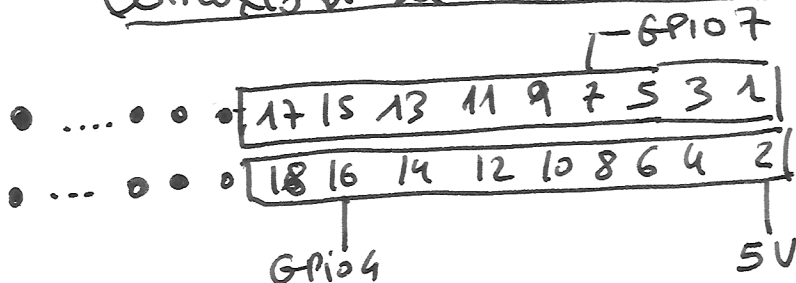 GPIO7
17 15 13 11 9 7 5 3 1
18 16 14 12 10 8 6 4 2
GPio4 5V